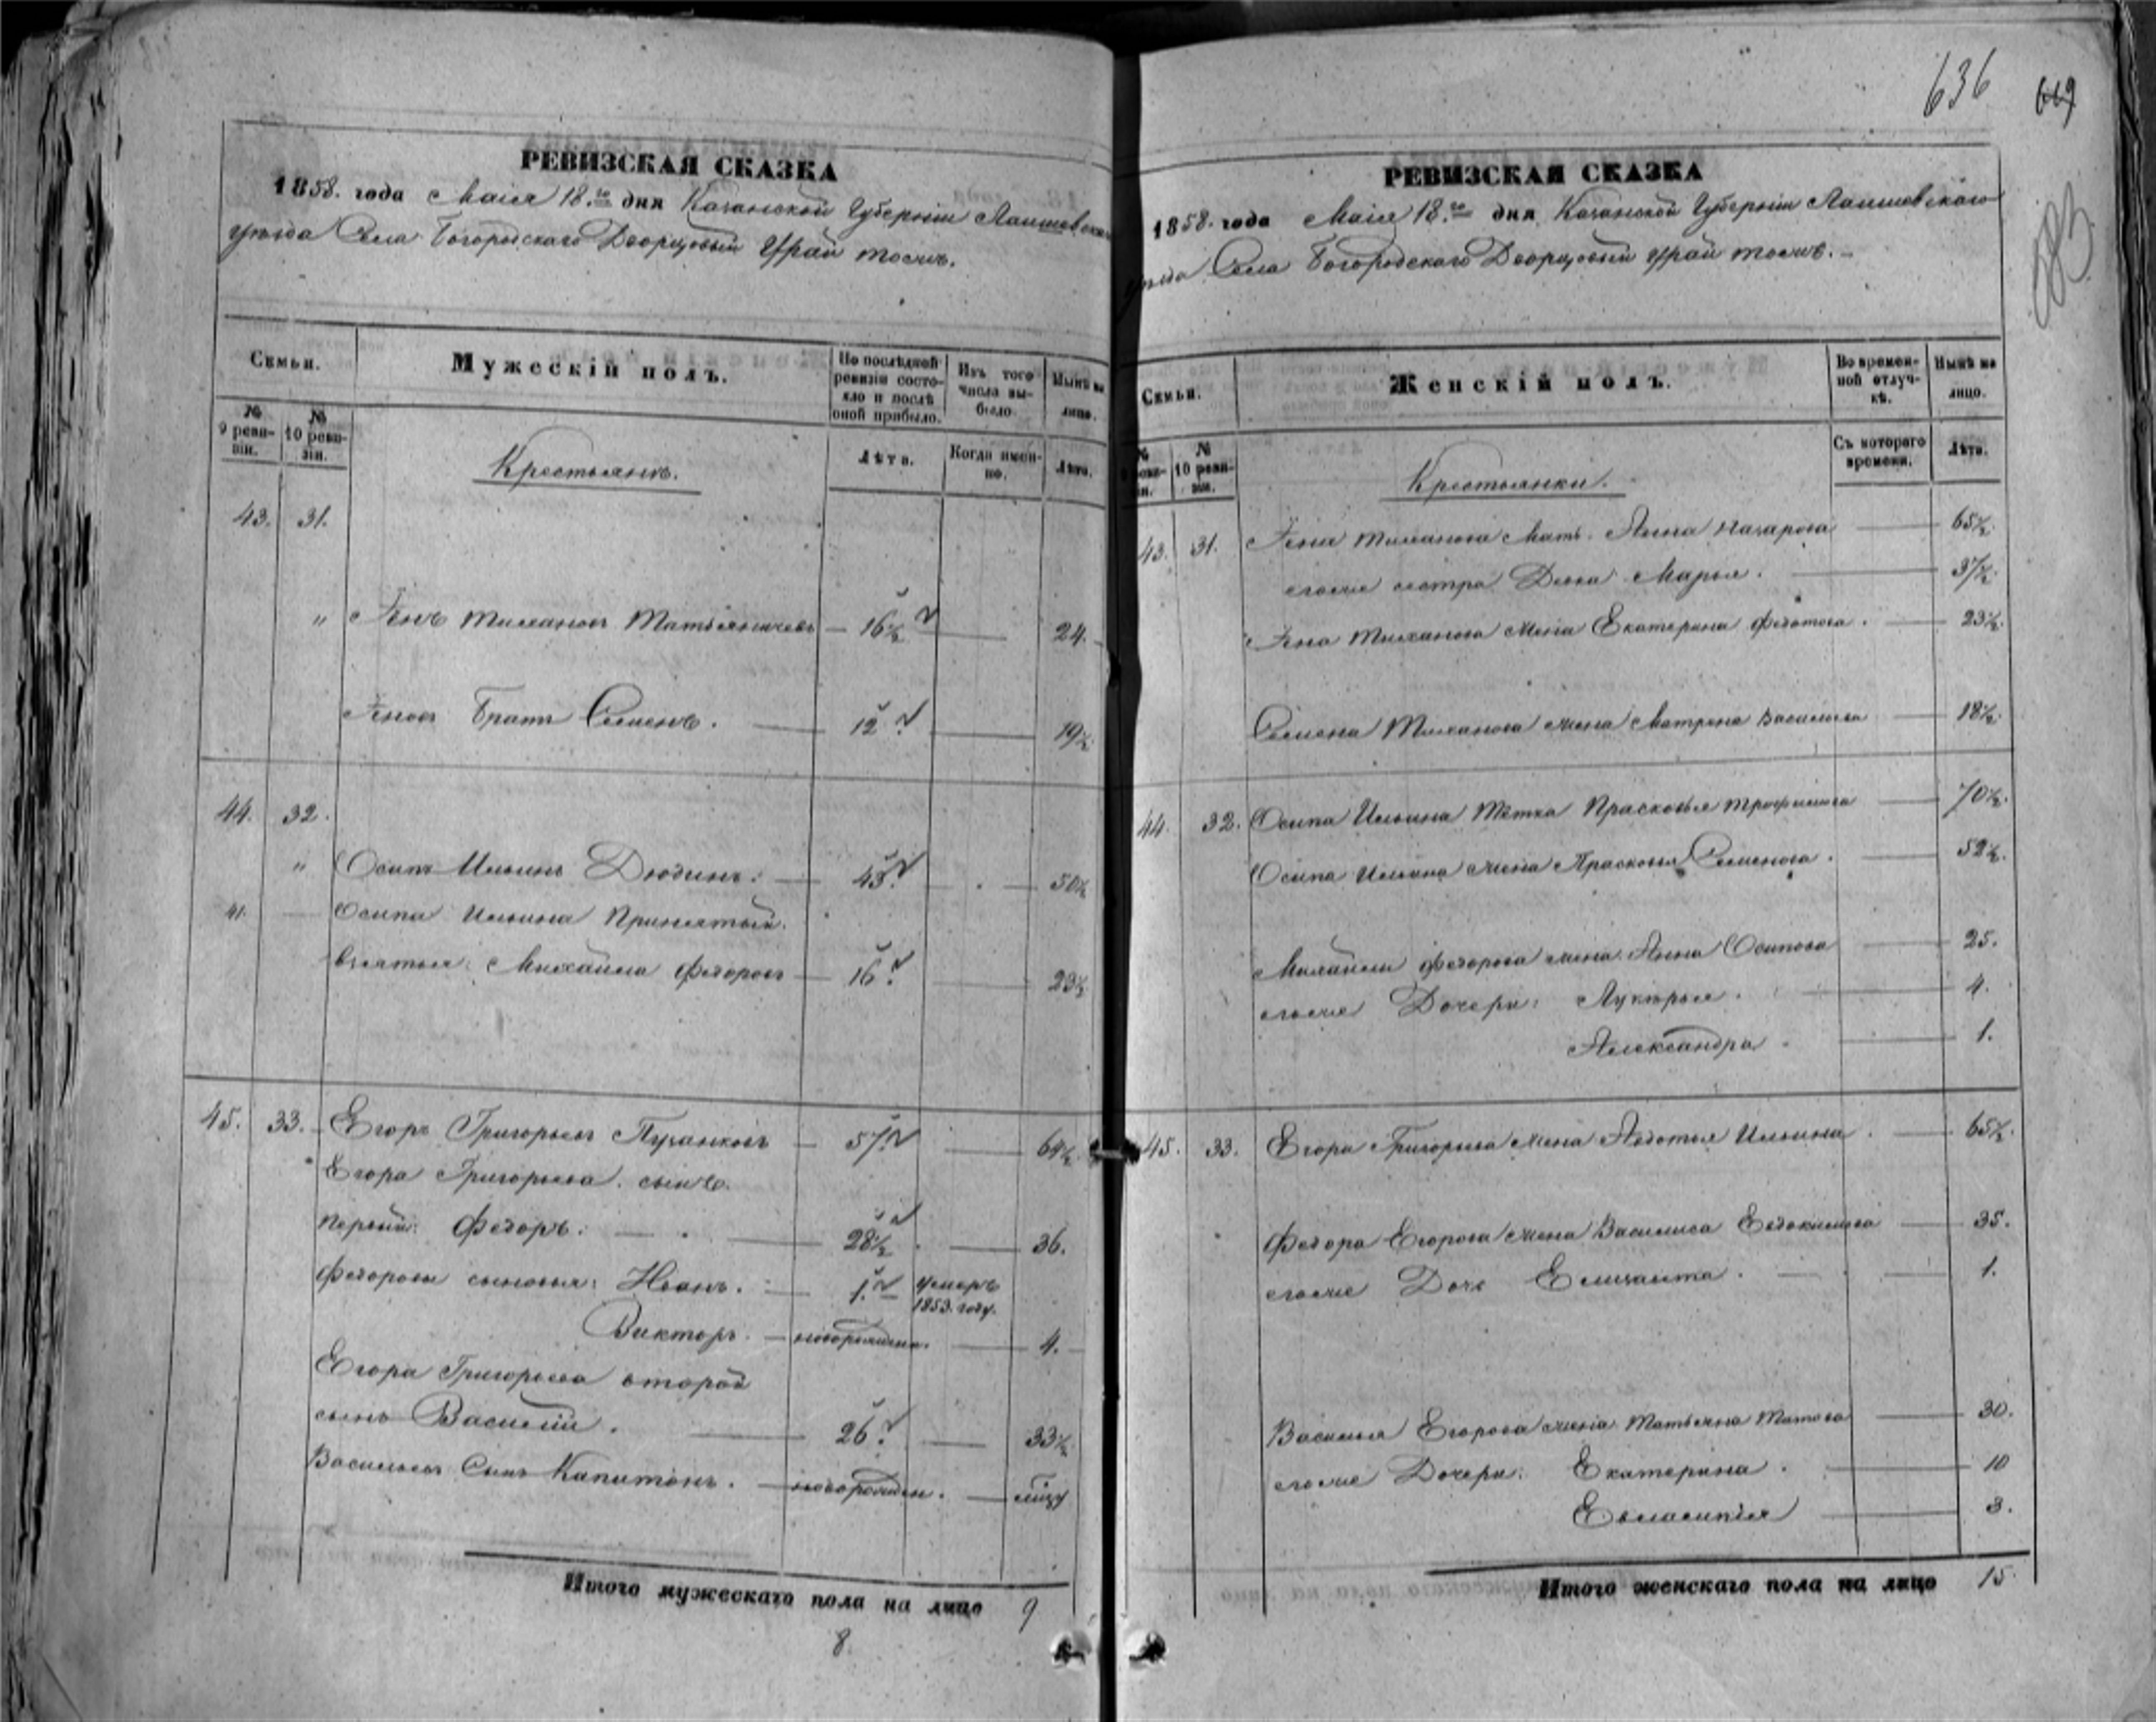 РЕВИЗСКАЯ СКАЗКА
1858. года Маія 18.го дня Казанской Губерніи Лаишевска
уѣзда Села Богородскаго Дворцовый Урай тожъ.
Семьи.
Мужескій полъ.
По послѣдней ревизіи состояло и послѣ оной прибыло.
Изъ того числа выбыло.
Нынѣ на лицо.
№ 9 ревизіи.
№ 10 ревизіи.
Крестьянъ.
Лѣта.
Когда именно.
Лѣта.
43. 31.
" Тихановъ — 16½ — 24.
Братъ Семенъ. — 12 — 19½
44. 32.
" Осипъ Ильинъ Дюдинъ. — 43 — 50½
41. — Осипа Ильина Принятый
Михайла Федоровъ — 16 — 23½
45. 33. Егоръ Григорьевъ — 57 — 64½
Егора Григорьева сынъ
первый Федоръ. — 28½ — 36.
Федоровы сыновья: Иванъ. — 1. умеръ 1853. году.
Викторъ. — новорожден. — 4.
Егора Григорьева второй
сынъ Василій. — 26 — 33½
Васильевъ Сынъ Капитонъ. — новорожден. —
Итого мужескаго пола на лицо 9
8.
636 619
РЕВИЗСКАЯ СКАЗКА
1858. года Маія 18.го дня Казанской Губерніи Лаишевскаго
уѣзда Села Богородскаго Дворцовый Урай тожъ. –
Семьи.
Женскій полъ.
Во временной отлучкѣ.
Нынѣ на лицо.
№ ревизіи.
№ 10 ревизіи.
Крестьянки.
Съ котораго времени.
Лѣта.
43. 31. Тиханова Мать Анна Назарова — 65½.
его же сестра Девка Марья. — 37½.
Тиханова жена Екатерина Федотова. — 23½.
Семена Тиханова жена Матрена Васильева — 18½.
44. 32. Осипа Ильина Тетка Прасковья Трофимова — 70½.
Осипа Ильина жена Прасковья Семенова. — 52½.
Михайлы Федорова жена Анна Осипова — 25.
его же Дочери: Лукерья. — 4.
Александра. — 1.
45. 33. Егора Григорьева жена Авдотья Ильина. — 65½.
Федора Егорова жена Василиса Евдокимова — 35.
его же Дочь — 1.
Василья Егорова жена Татьяна Титова — 30.
его же Дочери: Екатерина. — 10
Евлампія — 3.
Итого женскаго пола на лицо 15